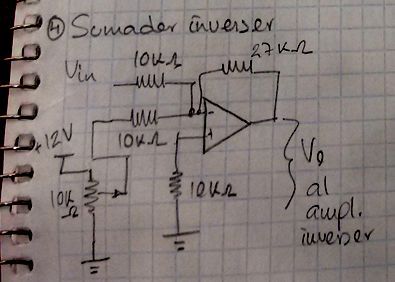 ④ Sumador inverser
10KΩ
27KΩ
Vin
-
10KΩ
+
+12V
10K
Ω
10KΩ
Vo
al
ampl.
inverser